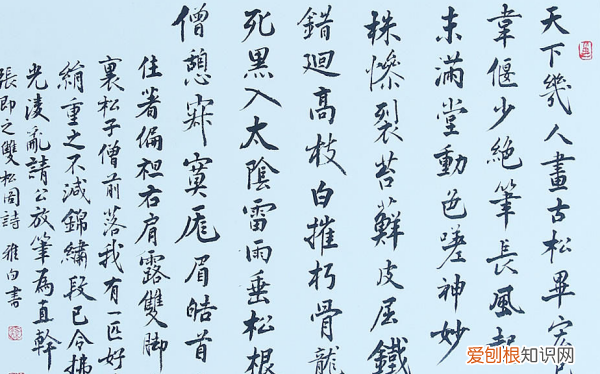 天下幾人畫古松畢宏已
韋偃少絕筆長風起
末滿堂動色嗟神妙
株慘裂苔蘚皮屈鐵
錯迴高枝白摧朽骨龍
死黑入太陰雷雨垂松根
僧憩寂寞厖眉皓首
住著偏袒右肩露雙脚
裏松子僧前落我有一匹好
絹重之不減錦繡段已令拂
光凌亂請公放筆為直幹
張即之雙松圖詩 雅白書
爱刨根知识网